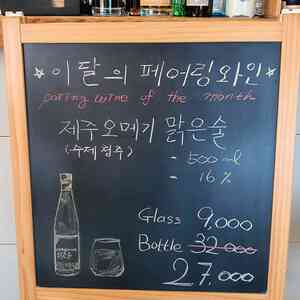 ★ 이달의 페어링와인 ★
paring wine of the month
제주오메기 맑은술
(수제청주)
- 500ml
- 16%
Glass 9,000
Bottle 32,000
27,000